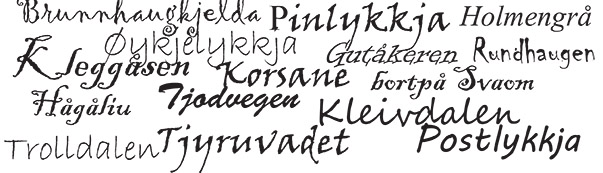 Brunnhaugkjelda Pinlykkja Holmengrå
Øykjelykkja Gutåkeren Rundhaugen
Kleggåsen Korsane bortpå Svaom
Hågåliu Tjodvegen Kleivdalen
Trolldalen Tjyruvadet Postlykkja